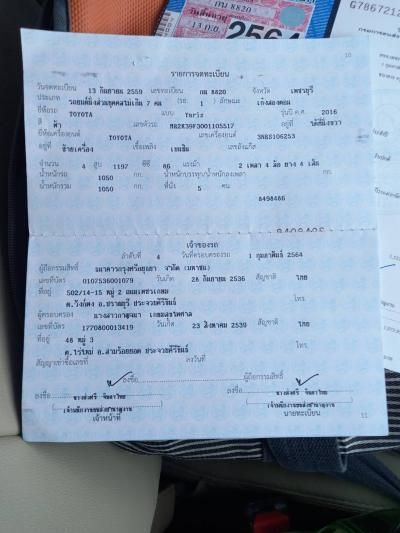 กน 8820
13 ก.ย.
2564
G7867212
10
รายการจดทะเบียน
วันจดทะเบียน 13 กันยายน 2559 เลขทะเบียน กน 8820 จังหวัด เพชรบุรี
ประเภท รถยนต์นั่งส่วนบุคคลไม่เกิน 7 คน (รย. 1 ) ลักษณะ เก๋งสองตอน
ยี่ห้อรถ TOYOTA แบบ Yaris รุ่นปี ค.ศ. 2016
สี ฟ้า เลขตัวรถ MR2K39F3001105517 อยู่ที่
ยี่ห้อเครื่องยนต์ TOYOTA เลขเครื่องยนต์ 3NRS106253
อยู่ที่ ซ้ายเครื่อง เชื้อเพลิง เบนซิน เลขถังแก๊ส
จำนวน 4 สูบ 1197 ซีซี 86 แรงม้า 2 เพลา 4 ล้อ ยาง 4 เส้น
น้ำหนักรถ 1050 กก. น้ำหนักบรรทุก/น้ำหนักลงเพลา กก.
น้ำหนักรวม 1050 กก. ที่นั่ง 5 คน
8498486
8498486
เจ้าของรถ
ลำดับที่ 4 วันที่ครอบครองรถ 1 กุมภาพันธ์ 2564
ผู้ถือกรรมสิทธิ์ ธนาคารกรุงศรีอยุธยา จำกัด (มหาชน)
เลขที่บัตร 0107536001079 วันเกิด 28 กันยายน 2536 สัญชาติ ไทย
ที่อยู่ 502/14-15 หมู่ 2 ถนนเพชรเกษม
ต.วังก์พง อ.ปราณบุรี ประจวบคีรีขันธ์ โทร.
ผู้ครอบครอง นางสาวกาญจนา
เลขที่บัตร 1770800013419 วันเกิด 23 สิงหาคม 2539 สัญชาติ ไทย
ที่อยู่ 48 หมู่ 3
ต.ไร่ใหม่ อ.สามร้อยยอด ประจวบคีรีขันธ์ โทร.
สัญญาเช่าซื้อเลขที่ ลงวันที่
ลงชื่อ ผู้ถือกรรมสิทธิ์
ลงชื่อ ลงชื่อ
เจ้าหน้าที่ นายทะเบียน
11